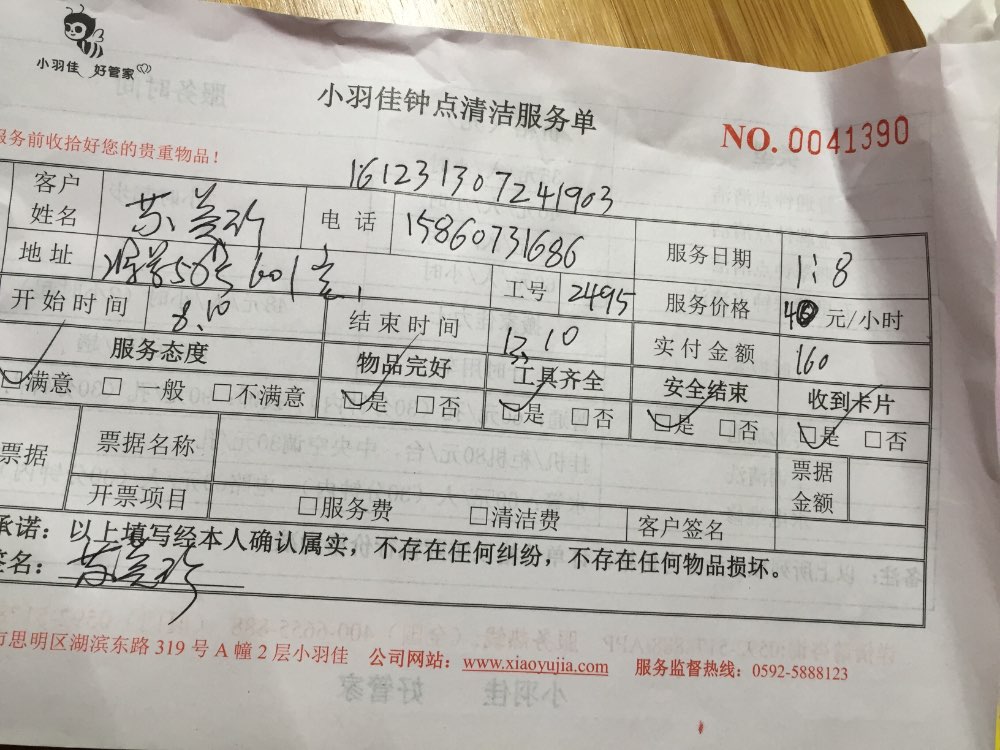 小羽佳 好管家
小羽佳钟点清洁服务单
NO. 0041390
服务前收拾好您的贵重物品！
161231307241903
客户姓名 苏 电话 15860731686 服务日期 1:8
地址 50号601室 工号 2495 服务价格 40 元/小时
开始时间 8:10 结束时间 12:10 实付金额 160
服务态度 物品完好 工具齐全 安全结束 收到卡片
□满意 □一般 □不满意 □是 □否 □是 □否 □是 □否 □是 □否
票据 票据名称 票据金额
开票项目 □服务费 □清洁费 客户签名
承诺：以上填写经本人确认属实，不存在任何纠纷，不存在任何物品损坏。
签名：苏
市思明区湖滨东路 319 号 A 幢 2 层小羽佳 公司网站：www.xiaoyujia.com 服务监督热线：0592-5888123